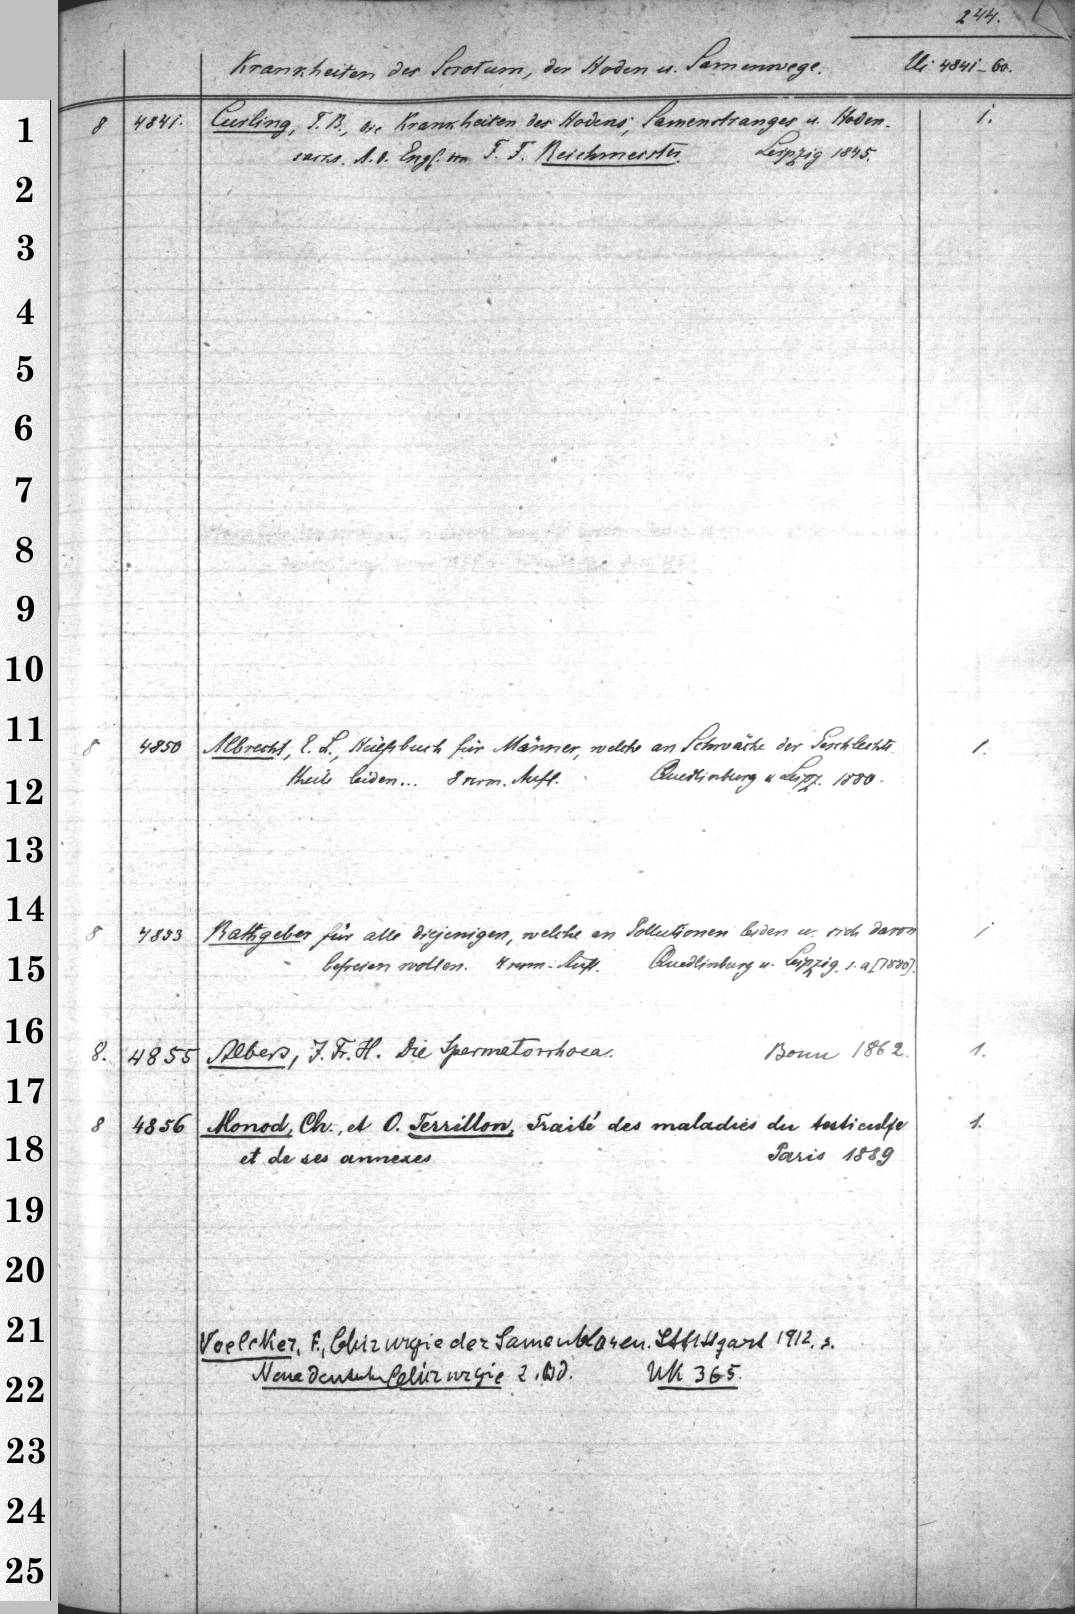 244.
Krankheiten des Scrotum, der Hoden u. Samenwege. Ui 4841-60.
1 8 4841. Curling, T. B., die Krankheiten des Hodens, Samenstranges u. Hoden- 1.
sacks. A. d. Engl. von F. F. Reichmeister. Leipzig 1845.
2
3
4
5
6
7
8
9
10
11 8 4850 Albrecht, E. L., Hülfsbuch für Männer, welche an Schwäche der Geschlechts- 1.
12 theile leiden... 8 verm. Aufl. Quedlinburg u Leipz. 1880.
13
14 8 4853 Rathgeber für alle diejenigen, welche an Pollutionen leiden u. sich davon 1
15 befreien wollen. 4 verm. Aufl. Quedlinburg u. Leipzig. s. a [1880].
16 8. 4855 Albers, J. Fr. H. Die Spermatorrhoea. Bonn 1862. 1.
17 8 4856 Monod, Ch., et O. Terrillon, Traité des maladies du testicule 1.
18 et de ses annexes Paris 1889
19
20
21 Voelcker, F., Chirurgie der Samenblasen. Stuttgart 1912. s.
22 Neue deutsche Chirurgie 2. Bd. UK 365.
23
24
25